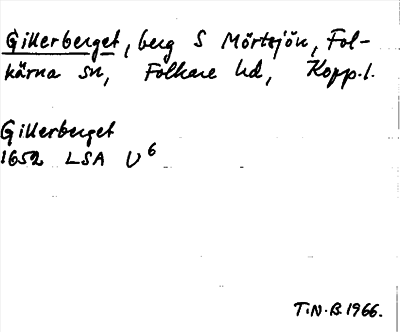 Gillerberget, berg S Mörtsjön, Fol-
kärna sn, Folkare hd, Kopp.l.
Gillerberget
1652 LSA U6
T.N.B. 1966.